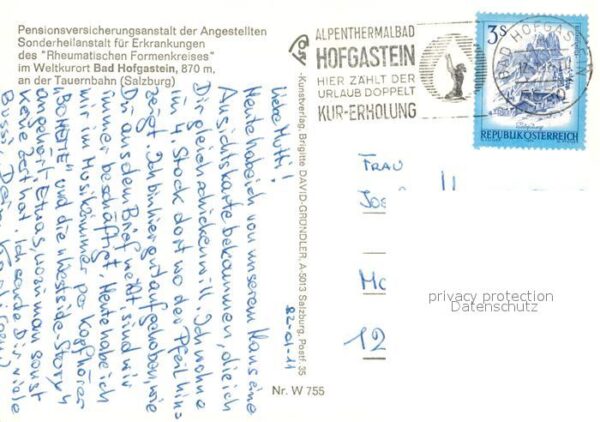 Pensionsversicherungsanstalt der Angestellten
Sonderheilanstalt für Erkrankungen
des "Rheumatischen Formenkreises"
im Weltkurort Bad Hofgastein, 870 m,
an der Tauernbahn (Salzburg)
ALPENTHERMALBAD
HOFGASTEIN
HIER ZÄHLT DER
URLAUB DOPPELT
KUR-ERHOLUNG
BAD HOFGASTEIN
3 S
REPUBLIK ÖSTERREICH
Kunstverlag, Brigitte DAVID-GRÜNDLER, A-5013 Salzburg, Postf. 35
Nr. W 755
82-01-11
Liebe Mutti!
Heute habe ich von unserem Haus eine
Ansichtskarte bekommen, die ich
Dir gleich schicken will. Ich wohne
im 4. Stock dort wo der Pfeil hin
zeigt. Ich bin hier gut aufgehoben, wie
Du aus dem Brief weißt, sind wir
immer beschäftigt. Heute habe ich
mir im Musikzimmer per Kopfhörer
"BOHEME" und die "Westside-Story"
angehört. Etwas, wozu man sonst
keine Zeit hat. Ich sende Dir viele
Bussi, Dein
FRAU
12
privacy protection
Datenschutz